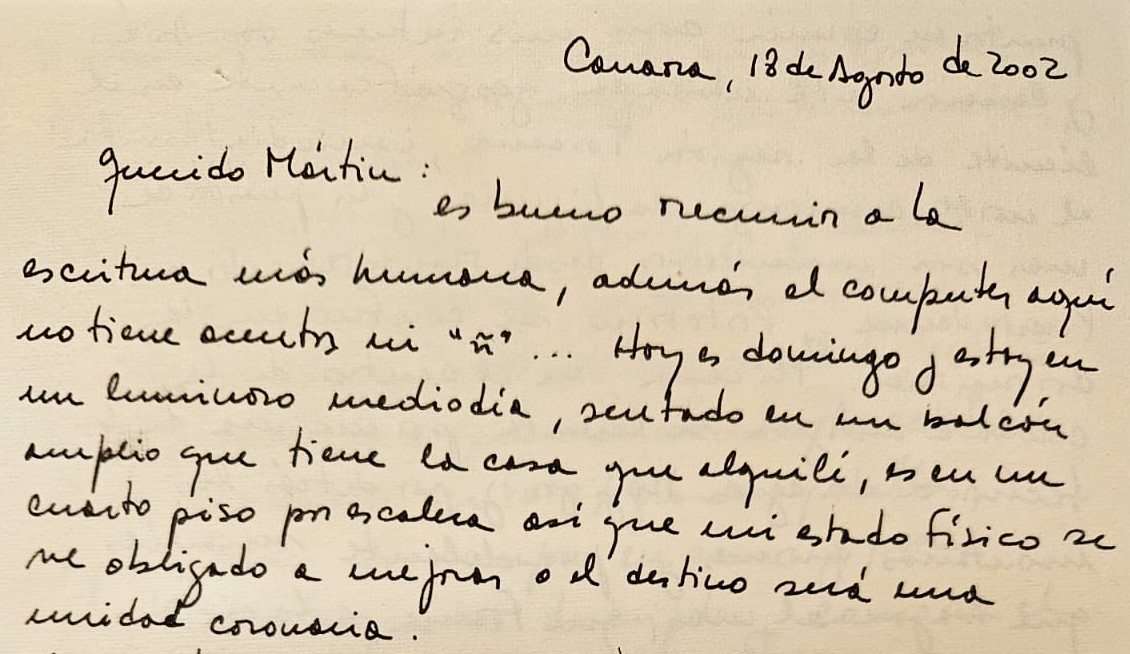 Carrara, 18 de Agosto de 2002
Querido Mártin:
es bueno recurrir a la
escritura más humana, además el computer aquí
no tiene acentos ni "ñ"... Hoy es domingo y estoy en
un luminoso mediodía, sentado en un balcón
amplio que tiene la casa que alquilé, es en un
cuarto piso por escalera así que mi estado físico se
ve obligado a mejorar o el destino será una
unidad coronaria.